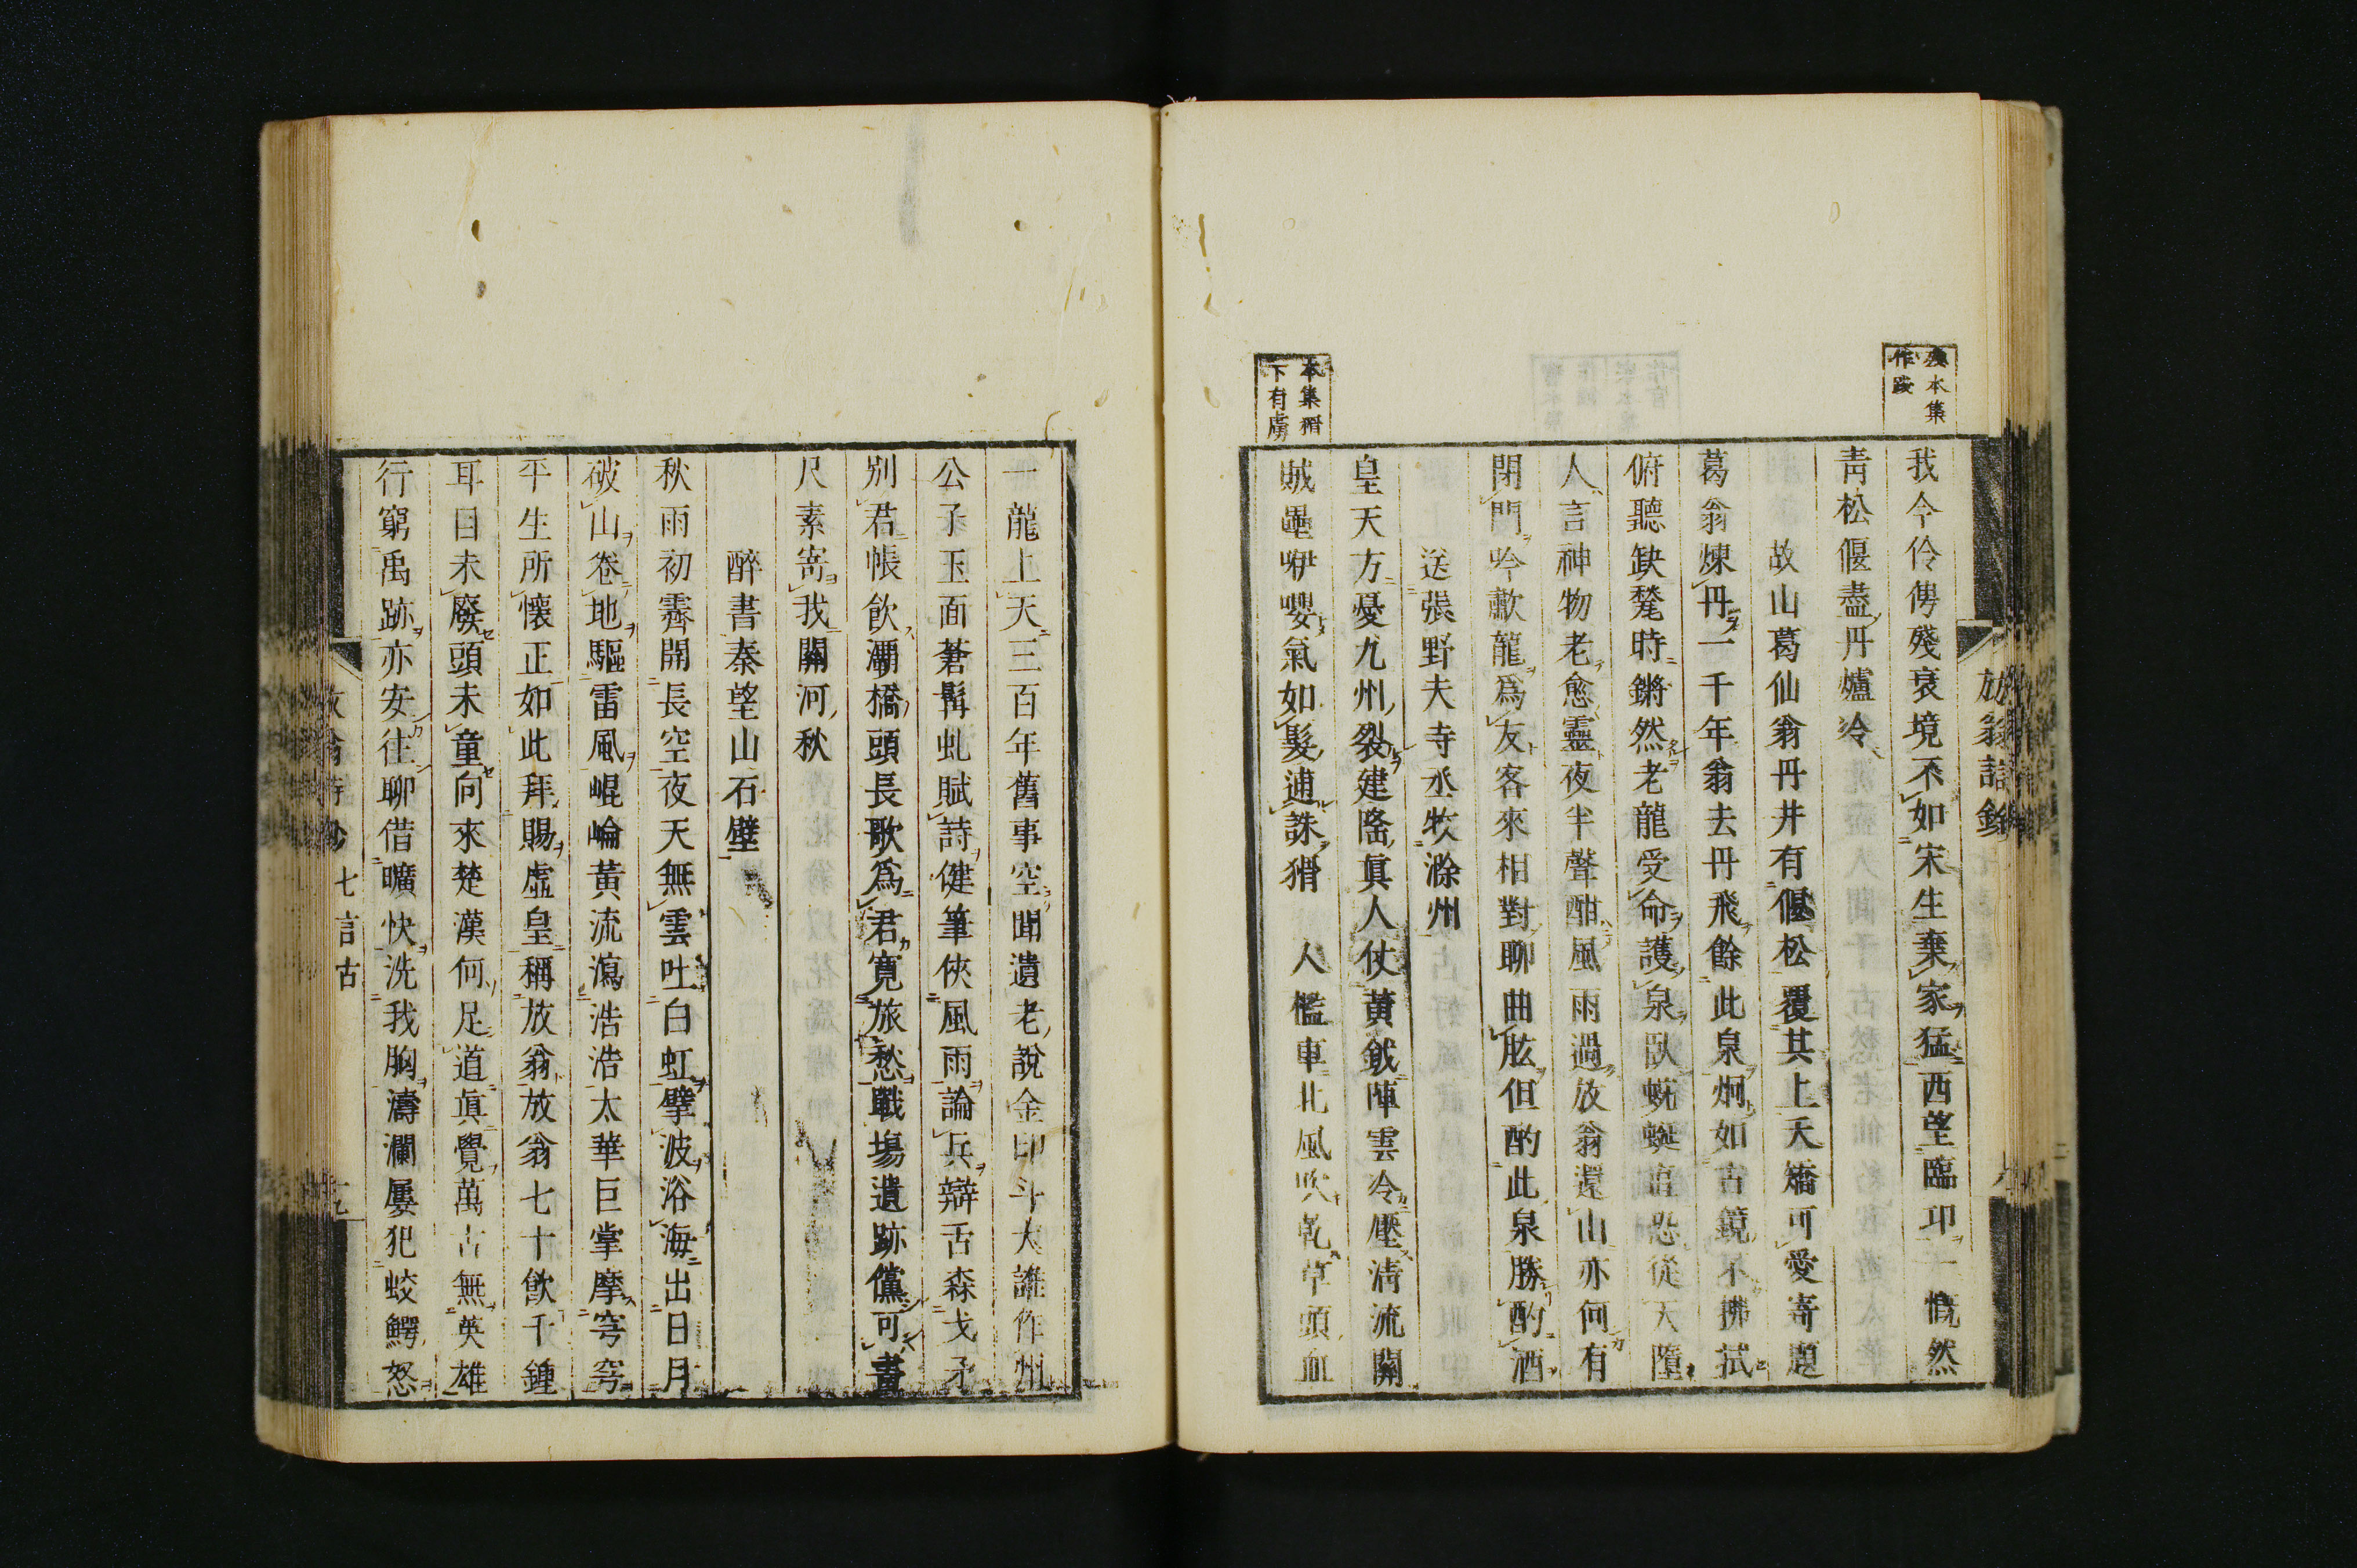 殘本集
作踐
我今伶俜殘衰境不如宋生棄家猛西望臨卭一慨然
青松偃盡丹爐冷
故山葛仙翁丹井有偃松覆其上夭矯可愛寄題
葛翁煉丹一千年翁去丹飛餘此泉炯如古鏡不拂拭
俯聽缺甃時鏘然老龍受命護泉臥蜿蜒直恐從天墮
人言神物老愈靈夜半聲酣風雨過放翁還山亦何有
閉門吟歗龍為友客來相對聊曲肱但酌此泉勝酌酒
送張野夫寺丞牧滁州
皇天方憂九州裂建隆眞人仗黃鉞陣雲冷壓清流關
賊壘咿嚶氣如髮逋誅猾 人檻車北風吹乾草頭血
本集猾
下有虜
放翁詩鈔
一龍上天三百年舊事空聞遺老說金印斗大誰作州
公子玉面蒼髯虬賦詩健筆俠風雨論兵辯舌森戈矛
別君帳飲灞橋頭長歌為君寬旅愁戰場遺跡儻可畫
尺素寄我關河秋
醉書秦望山石壁
秋雨初霽開長空夜天無雲吐白虹擘波浴海出日月
破山卷地驅雷風崐崘黃流瀉浩浩太華巨掌摩穹穹
平生所懷正如此拜賜虛皇稱放翁放翁七十飲千鍾
耳目未廢頭未童向來楚漢何足道眞覺萬古無英雄
行窮禹跡亦安往聊借曠快洗我胸濤瀾屢犯蛟鰐怒
七言古